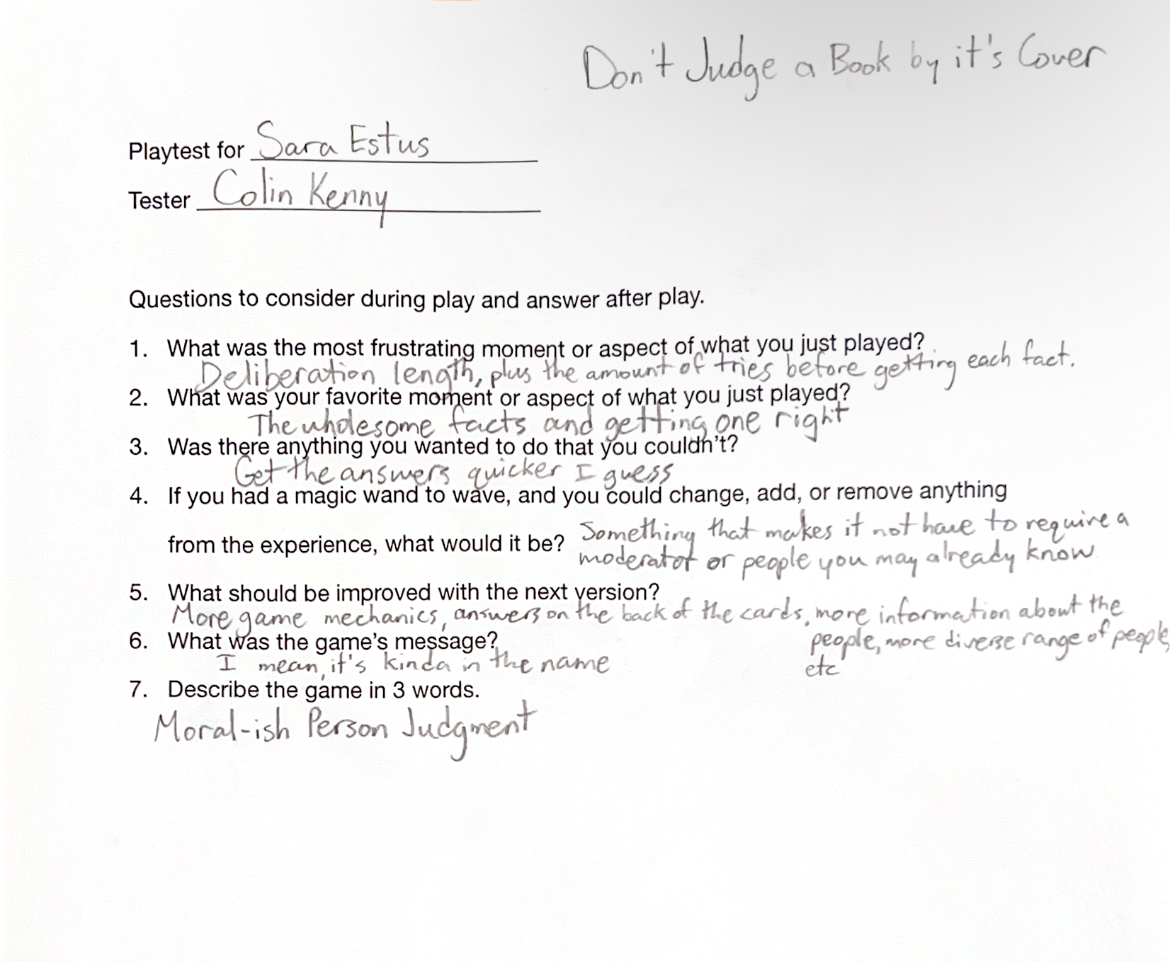 Don't Judge a Book by it's Cover
Playtest for Sara Estus
Tester Colin Kenny
Questions to consider during play and answer after play.
1. What was the most frustrating moment or aspect of what you just played?
Deliberation length, plus the amount of tries before getting each fact.
2. What was your favorite moment or aspect of what you just played?
The wholesome facts and getting one right
3. Was there anything you wanted to do that you couldn't?
Get the answers quicker I guess
4. If you had a magic wand to wave, and you could change, add, or remove anything
from the experience, what would it be? Something that makes it not have to require a
moderator or people you may already know
5. What should be improved with the next version?
More game mechanics, answers on the back of the cards, more information about the
people, more diverse range of people,
etc
6. What was the game's message?
I mean, it's kinda in the name
7. Describe the game in 3 words.
Moral-ish Person Judgment